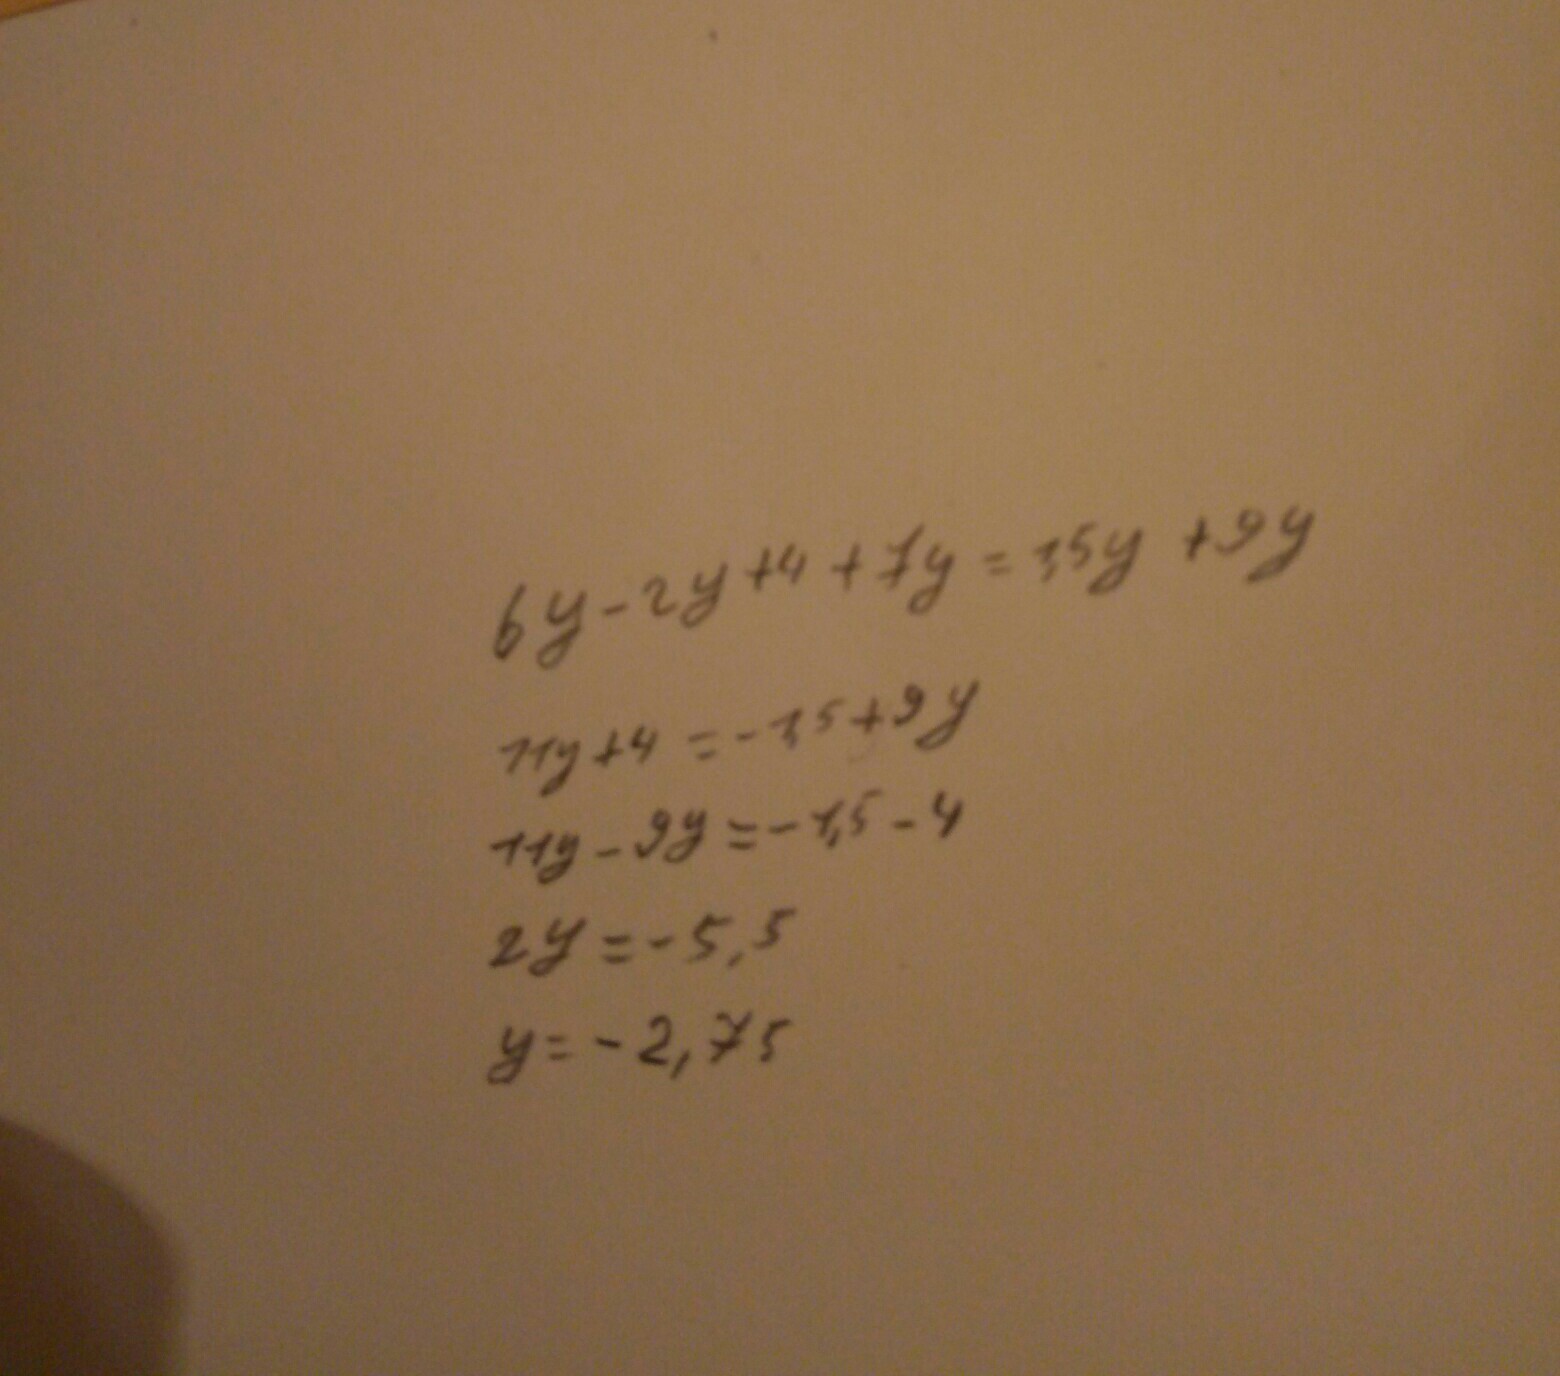 6y-2y+4+7y=1,5y+9y
11y+4=-1,5+9y
11y-9y=-1,5-4
2y=-5,5
y=-2,75